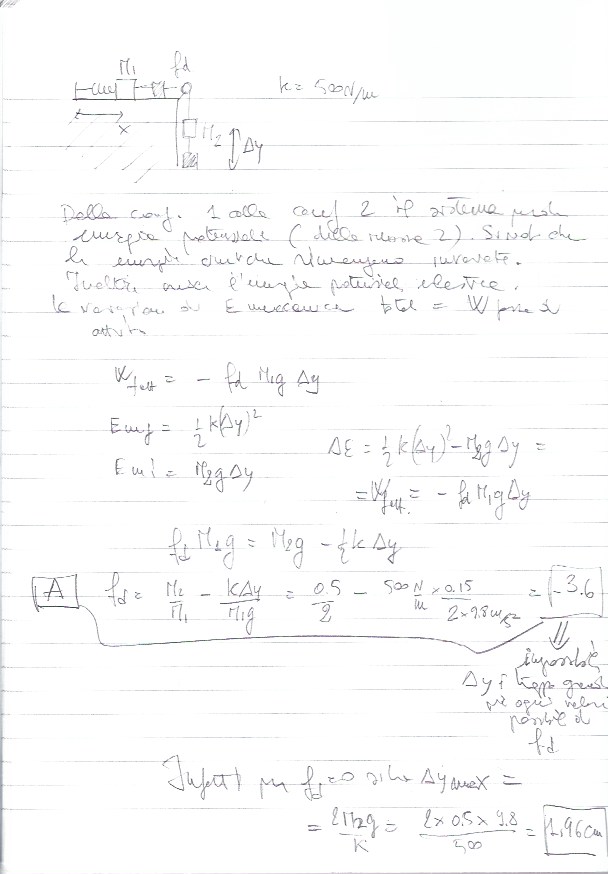 M1 fd
k = 500 N/m
x
M2 Δy
Dalla conf. 1 alla conf 2 il sistema perde
energia potenziale (della massa 2). Si not che
le energie cinetiche rimangono invariate.
Inoltre, aumenta l'energia potenziale elastica.
variazione di E meccanica tot = W forze di
attrito
W f att = - fd M1g Δy
Emf = 1/2 k(Δy)²
Emi = M2g Δy
ΔE = 1/2 k(Δy)² - M2g Δy =
= W f att. = - fd M1g Δy
fd M1g = M2g - 1/2 k Δy
A fd = M2/M1 - kΔy/M1g = 0.5/2 - 500 N/m × 0.15/2×9.8 m/s² = -3.6
impossibile
Δy è troppo grande
per ogni valore
possibile di
fd
Infatti per fd=0 si ha Δy max =
= 2M2g/k = 2 × 0.5 × 9.8/500 = 1,96 cm